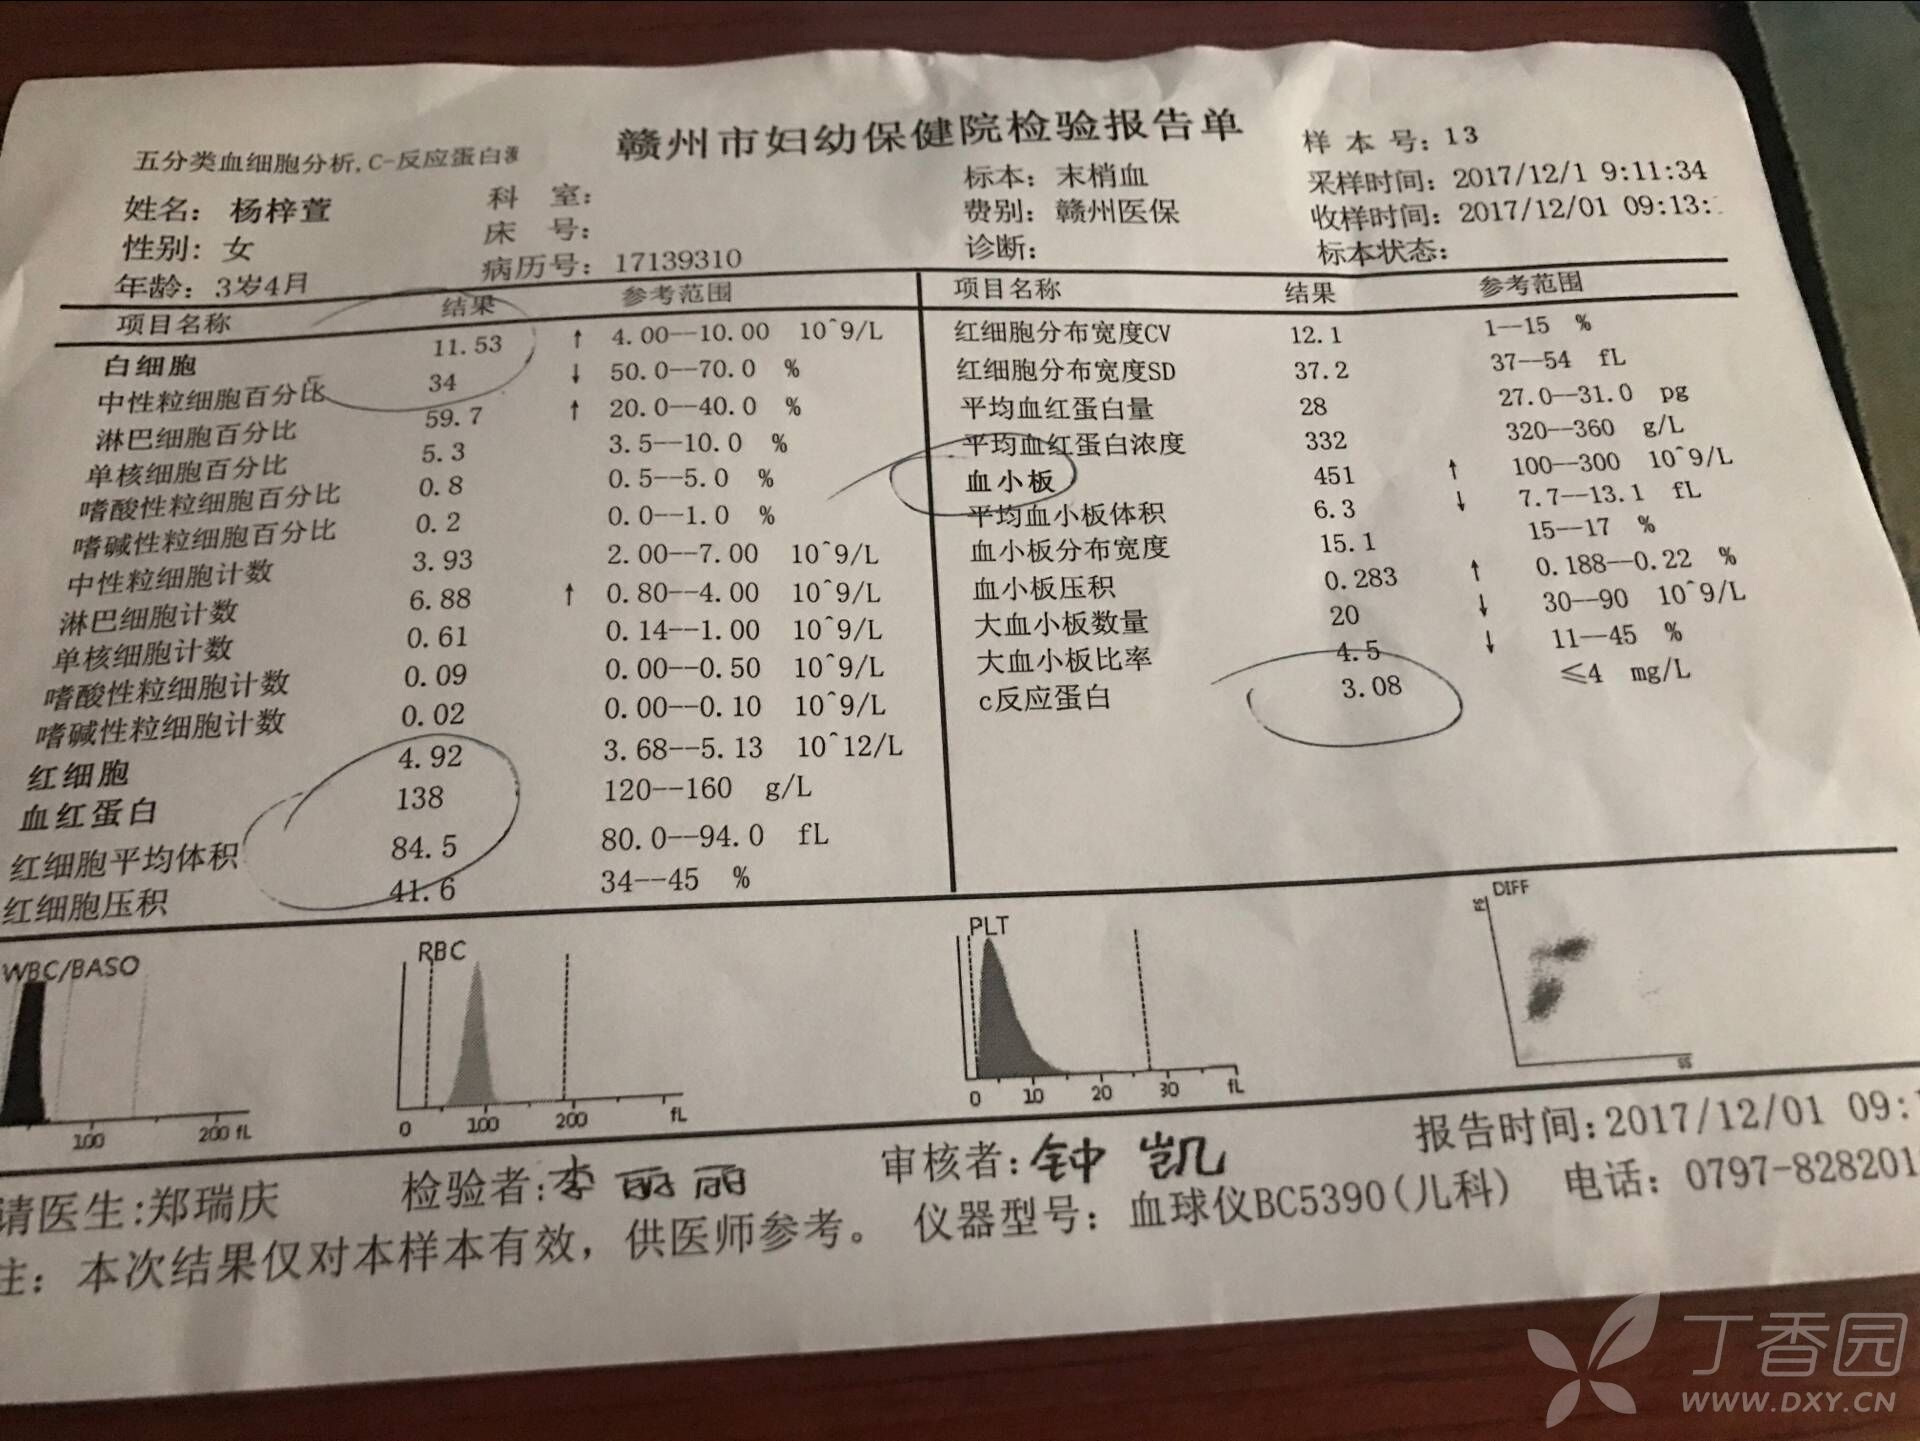 赣州市妇幼保健院检验报告单
五分类血细胞分析,C-反应蛋白
样本号: 13
姓名: 杨梓萱 科 室: 标本: 末梢血 采样时间: 2017/12/1 9:11:34
性别: 女 床 号: 费别: 赣州医保 收样时间: 2017/12/01 09:13:
年龄: 3岁4月 病历号: 17139310 诊断: 标本状态:
项目名称 结果 参考范围
白细胞 11.53 ↑ 4.00--10.00 10^9/L
中性粒细胞百分比 34 ↓ 50.0--70.0 %
淋巴细胞百分比 59.7 ↑ 20.0--40.0 %
单核细胞百分比 5.3 3.5--10.0 %
嗜酸性粒细胞百分比 0.8 0.5--5.0 %
嗜碱性粒细胞百分比 0.2 0.0--1.0 %
中性粒细胞计数 3.93 2.00--7.00 10^9/L
淋巴细胞计数 6.88 ↑ 0.80--4.00 10^9/L
单核细胞计数 0.61 0.14--1.00 10^9/L
嗜酸性粒细胞计数 0.09 0.00--0.50 10^9/L
嗜碱性粒细胞计数 0.02 0.00--0.10 10^9/L
红细胞 4.92 3.68--5.13 10^12/L
血红蛋白 138 120--160 g/L
红细胞平均体积 84.5 80.0--94.0 fL
红细胞压积 41.6 34--45 %
项目名称 结果 参考范围
红细胞分布宽度CV 12.1 1--15 %
红细胞分布宽度SD 37.2 37--54 fL
平均血红蛋白量 28 27.0--31.0 pg
平均血红蛋白浓度 332 320--360 g/L
血小板 451 ↑ 100--300 10^9/L
平均血小板体积 6.3 ↓ 7.7--13.1 fL
血小板分布宽度 15.1 15--17 %
血小板压积 0.283 ↑ 0.188--0.22 %
大血小板数量 20 ↓ 30--90 10^9/L
大血小板比率 4.5 ↓ 11--45 %
c反应蛋白 3.08 ≤4 mg/L
WBC/BASO
100 200 fL
RBC
0 100 200 fL
PLT
0 10 20 30 fL
DIFF
FS
SS
请医生:郑瑞庆 检验者:李丽丽 审核者:钟凯 报告时间:2017/12/01 09:1
注: 本次结果仅对本样本有效，供医师参考。 仪器型号: 血球仪BC5390(儿科) 电话: 0797-828201
丁香园
WWW.DXY.CN